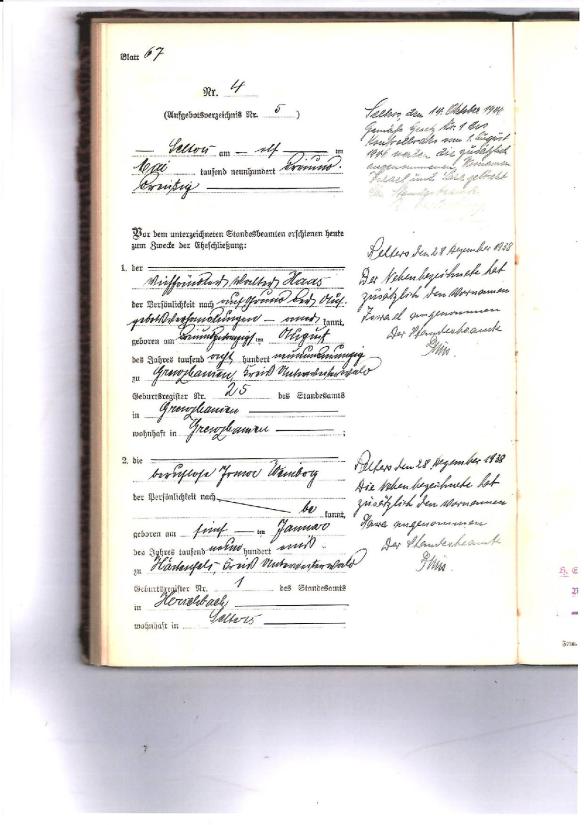 Blatt 67
Nr. 4
(Aufgebotsverzeichnis Nr. 5)
Selters am elf ten
Mai tausend neunhundert dreiund-
dreißig
Vor dem unterzeichneten Standesbeamten erschienen heute
zum Zwecke der Eheschließung:
1. der
Walter Haas
der Persönlichkeit nach auf Grund des Auf-
gebotsverhandlungen kannt,
geboren am ten August
des Jahres tausend acht hundert neunundneunzig
zu Grenzhausen, Kreis Unterwesterwald
Geburtsregister Nr. 25 des Standesamts
in Grenzhausen
wohnhaft in Grenzhausen ;
2. die
berufslose Irma
der Persönlichkeit nach
be kannt,
geboren am fünf ten Januar
des Jahres tausend neun hundert
zu Kreis Unterwesterwald
Geburtsregister Nr. 1 des Standesamts
in Herschbach
wohnhaft in Selters
Selters, den 14. Oktober
Gemäß Gesetz Nr. 1 des
Kontrollrats vom August
werden die zusätzlich
angenommenen Vornamen
Israel und Sara gelöscht
Der Standesbeamte
Selters den 28 Dezember 1938
Der Nebenbezeichnete hat
zusätzlich den Vornamen
Israel angenommen
Der Standesbeamte
Selters den 28. Dezember 1938
Die Nebenbezeichnete hat
zusätzlich den Vornamen
Sara angenommen
Der Standesbeamte